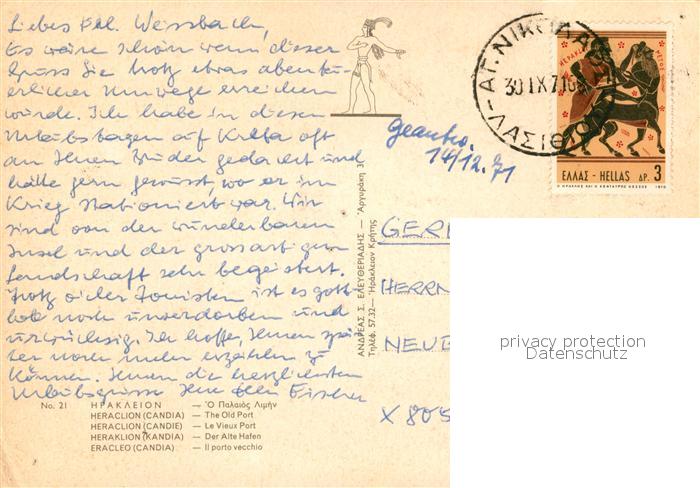 Liebes Frl. Weissbach,
Es wäre schön wenn dieser
Gruss Sie trotz etwas abenteu-
erlicher Umwege erreichen
würde. Ich habe in diesen
Urlaubstagen auf Kreta oft
an Ihren Bruder gedacht und
hätte gern gewusst, wo er im
Krieg stationiert war. Wir
sind von der wunderbaren
Insel und der grossartigen
Landschaft sehr begeistert.
Trotz der Touristen ist es gott-
lob noch unverdorben und
urwüchsig. Ich hoffe, Ihnen spä-
ter noch mehr erzählen zu
können. Ihnen die herzlichsten
Urlaubsgrüsse Ihre Fischer
No. 21 ΗΡΑΚΛΕΙΟΝ — Ὁ Παλαιὸς Λιμὴν
HERACLION (CANDIA) — The Old Port
HERACLION (CANDIE) — Le Vieux Port
HERAKLION (KANDIA) — Der Alte Hafen
ERACLEO (CANDIA) — Il porto vecchio
ΑΝΔΡΕΑΣ Σ. ΕΛΕΥΘΕΡΙΑΔΗΣ — Ἀργυράκη 3
Τηλέφ. 57.32 — Ἡράκλειον Κρήτης
ΑΓ. ΝΙΚΟΛΑΟΣ
30 IX 71
ΛΑΣΙΘΙΟΥ
ΕΛΛΑΣ - HELLAS ΔΡ. 3
Ο ΗΡΑΚΛΗΣ ΚΑΙ Ο ΚΕΝΤΑΥΡΟΣ ΝΕΣΣΟΣ 1970
14/12.71
HERRN
X 805
privacy protection
Datenschutz